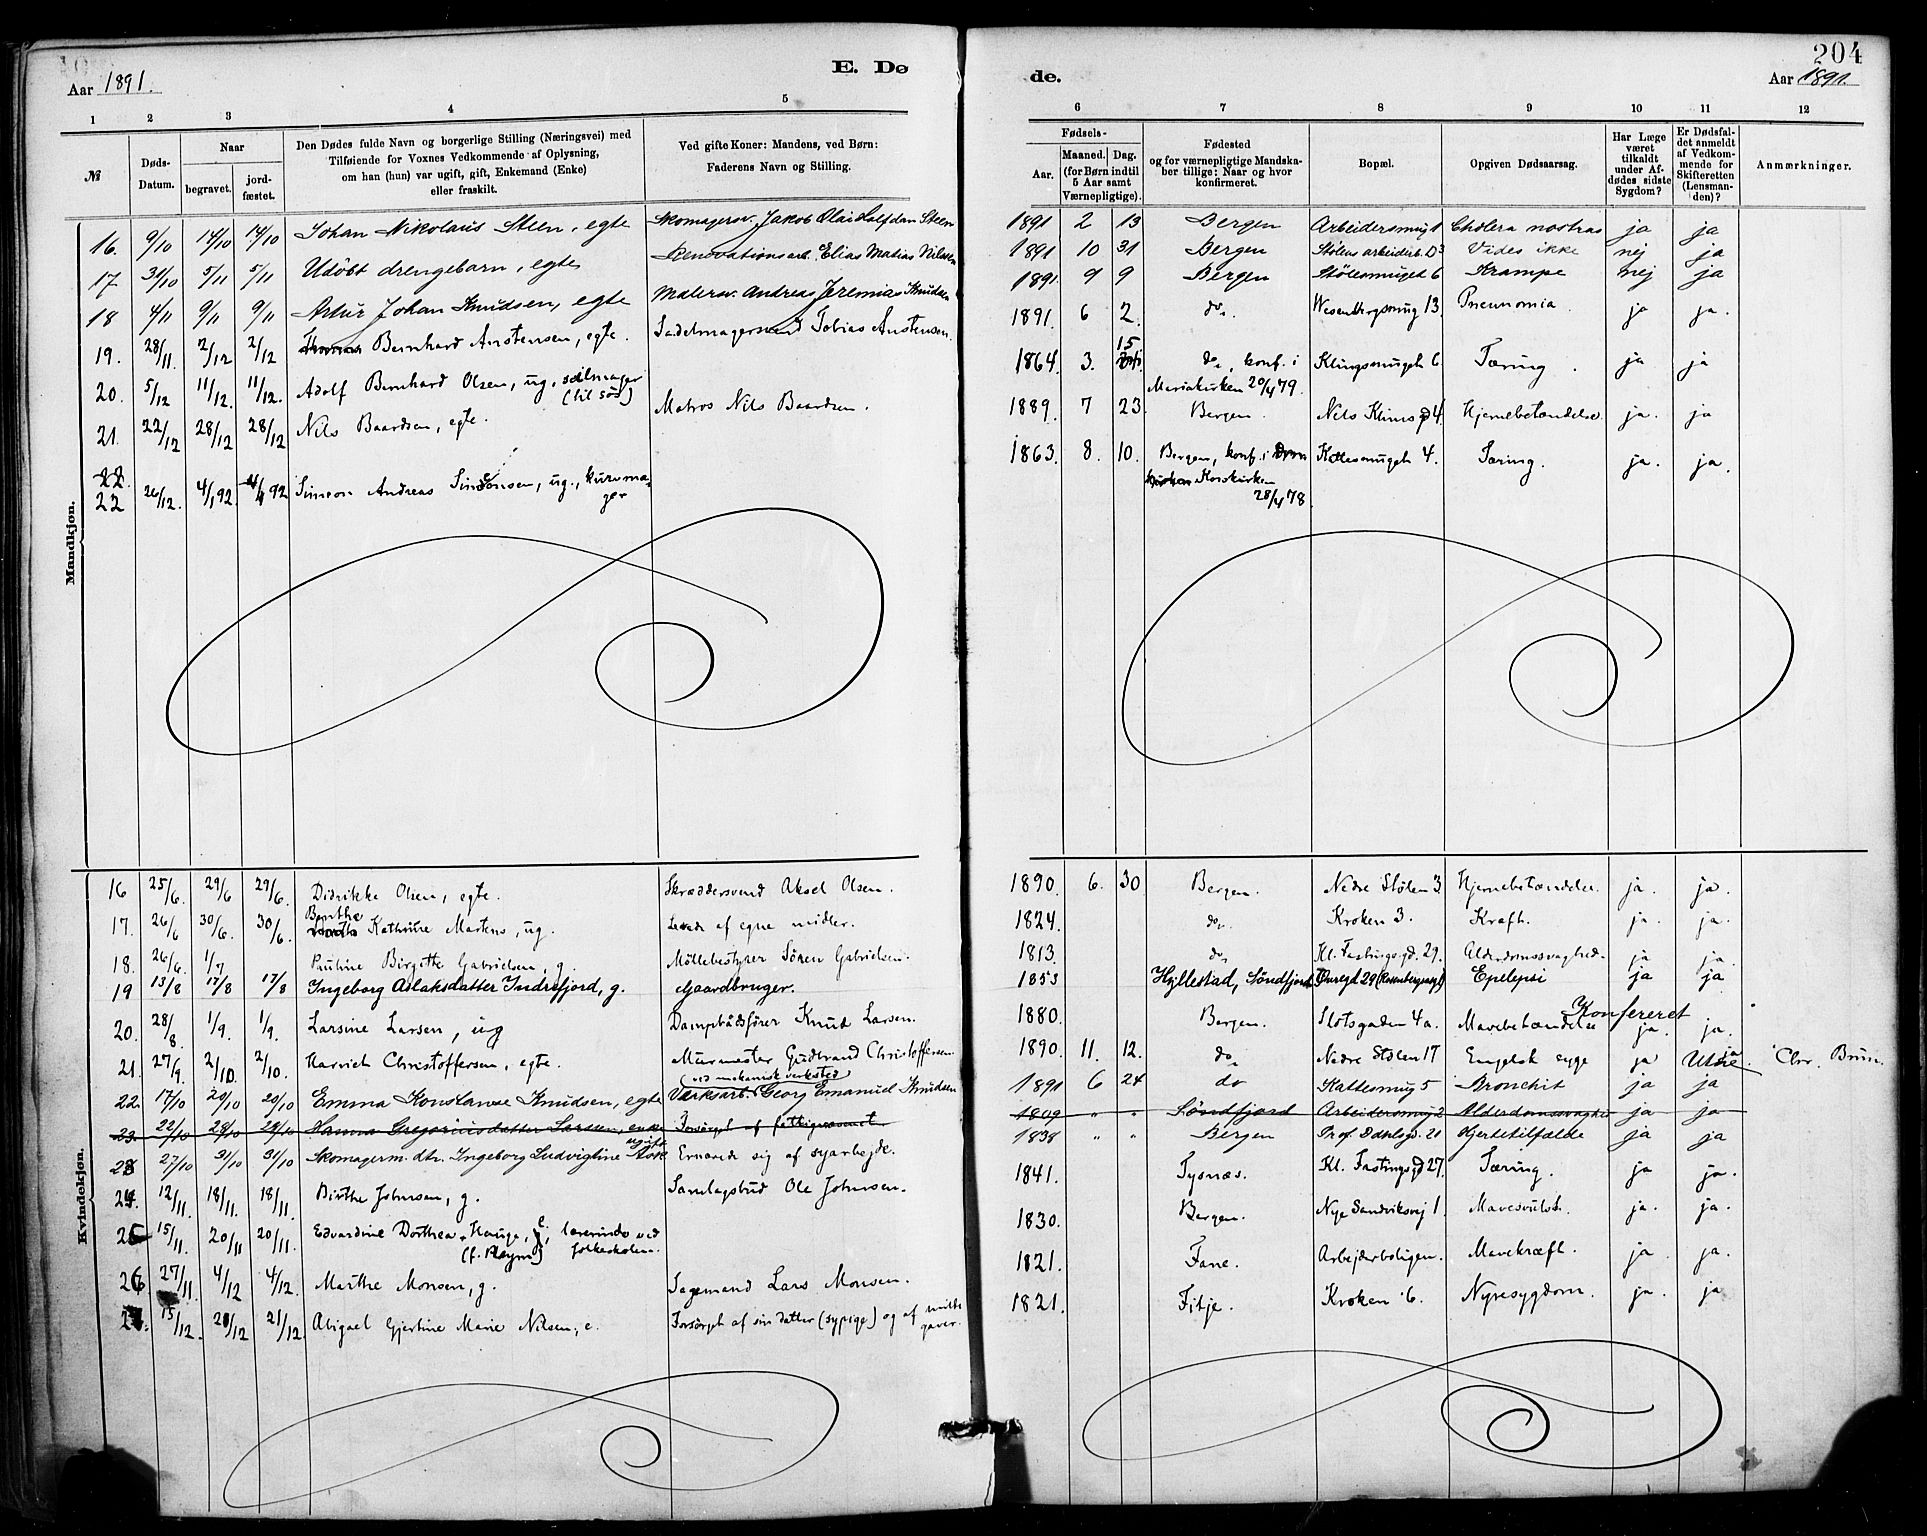 204
E. Dø
de.
Aar 1891.
Aar 1891.
1 2 3 4 5
6 7 8 9 10 11 12
№
Døds-Datum.
Naar
begravet.
jordfæstet.
Den Dødes fulde Navn og borgerlige Stilling (Næringsvei) med
Tilføiende for Voxnes Vedkommende af Oplysning,
om han (hun) var ugift, gift, Enkemand (Enke)
eller fraskilt.
Ved gifte Koner: Mandens, ved Børn:
Faderens Navn og Stilling.
Fødsels-
Aar.
Maaned. Dag.
(for Børn indtil
5 Aar samt
Værnepligtige).
Fødested
og for værnepligtige Mandska-
ber tillige: Naar og hvor
konfirmeret.
Bopæl.
Opgiven Dødsaarsag.
Har Læge
været
tilkaldt
under Af-
dødes sidste
Sygdom?
Er Dødsfal-
det anmeldt
af Vedkom-
mende for
Skifteretten
(Lensman-
den)?
Anmærkninger.
Mandkjøn.
16. 9/10 14/10 14/10 Johan Nikolaus Steen, egte Skomagersv. Jakob Olai Halfdan Steen 1891 2 13 Bergen Arbeidersmug 1 Cholera nostras ja ja
17 31/10 5/11 5/11 Udöbt drengebarn, egte Renovationsarb. Elias Matias Nilssen 1891 10 31 Bergen Stølens arbeiderb. D3 Vides ikke nej ja
18 4/11 9/11 9/11 Artur Johan Knudsen, egte Malersv. Andreas Jeremias Knudsen 1891 9 9 Bergen Stölesmuget 6 Krampe nej ja
19. 28/11. 2/12 2/12 Bernhard Anstensen, egte. Sadelmagersvend Tobias Anstensen. 1891. 6 2. do. Wesenbergsmug 13. Pneunomia ja ja.
20. 5/12 11/12. 11/12. Adolf Bernhard Olsen, ug. seilmager
(til søs) 1864. 3. 15 do, konf. i
Mariakirken 20/4 79. Klingesmuget 6 Tæring. ja ja
21. 22/12 28/12 28/12 Nils Baardsen, egte. Matros Nils Baardsen. 1889. 7 23. Bergen. Nils Klims g 4. Hjernebetændelse. ja. ja
22.
22 26/12. 4/1 92. 4/1 92 Simeon Andreas Simonsen, ug., kurvma-
ger 1863. 8. 10. Bergen, konf. i Dom
kirken Korskirken
28/4 78. Kattesmuget 4. Tæring. ja. ja.
Kvindekjøn.
16 25/6. 29/6 29/6. Didrikke Olsen, egte. Skræddersvend Aksel Olsen. 1890. 6. 30 Bergen. Nedre Stölen 3. Hjernebetændelse. ja. ja.
17. 26/6 30/6. 30/6. Benthe Kathrine Martens, ug. Levede af egne midler. 1824. do. Kroken 3. Kræft. ja. ja.
18. 26/6. 1/7 Pauline Birgitte Gabrielsen, g. Möllebestyrer Sören Gabrielsen. 1813. do, Kl. Fastingsgd. 29. Alderdomssvaghed. ja ja.
19 13/8 17/8 17/8 Ingeborg Aslaksdatter Indrefjord, g. Gaardbruger. 1853 Hyllestad, Söndfjord 29 Epilepsi ja ja
20. 28/8. 1/9. 1/9. Larsine Larsen, ug Dampbådsfører Knud Larsen. 1880. Bergen. Slotsgaden 4a. Mavebetændelse ja. ja.
Konfereret
21. 27/9. 2/10. 2/10. Harriet Christoffersen, egte. Murmester Gudbrand Christoffersen. 1890. 11. 12. do Nedre Stölen 17 Engelsk syge ja ja Chr. Brun.
22. 17/10 20/10 20/10 Emma Konstanse Knudsen, egte (ved mekanisk verksted)
Værksarb. Georg Emanuel Knudsen 1891 6 24 do Kattesmug 5 Bronchit ja ja
23. 22/10 28/10 28/10 Hanna Gregoriusdatter Larsen, enke Forsörget af fattigvæsenet 1809 " " Söndfjord Arbeidersmug 2 Alderdomssvaghed ja ja
23 27/10 31/10 31/10 Skomagerm. dtr. Ingeborg Ludvigtine ugift Ernærede sig af syarbejde. 1838 " " Bergen Prof. Dahlsgd. 21 Hjertetilfælde ja ja
24. 12/11. 18/11. 18/11. Birthe Johnsen, g. Samlagsbud Ole Johnsen. 1841. Tysnæs. Kl. Fastingsgd 27. Tæring. ja ja.
25 15/11. 20/11 20/11. Edvardine Dorthea Hauge, e., lærerinde ved
(f. Meyer) folkeskolen. 1830. Bergen. Nye Sandviksvej 1. Mavesvulst. ja. ja.
26 27/11. 4/12 4/12. Marthe Monsen, g. Sagemand Lars Monsen. 1821. Fane. Arbejderboligen. Mavekræft. ja. ja.
27. 15/12. 21/12 21/12. Abigael Gjertine Marie Nilsen, e. Forsörget af sin datter (sypige) og af milde
gaver. 1821. Fitje. Kroken 6. Nyresygdom. ja. ja